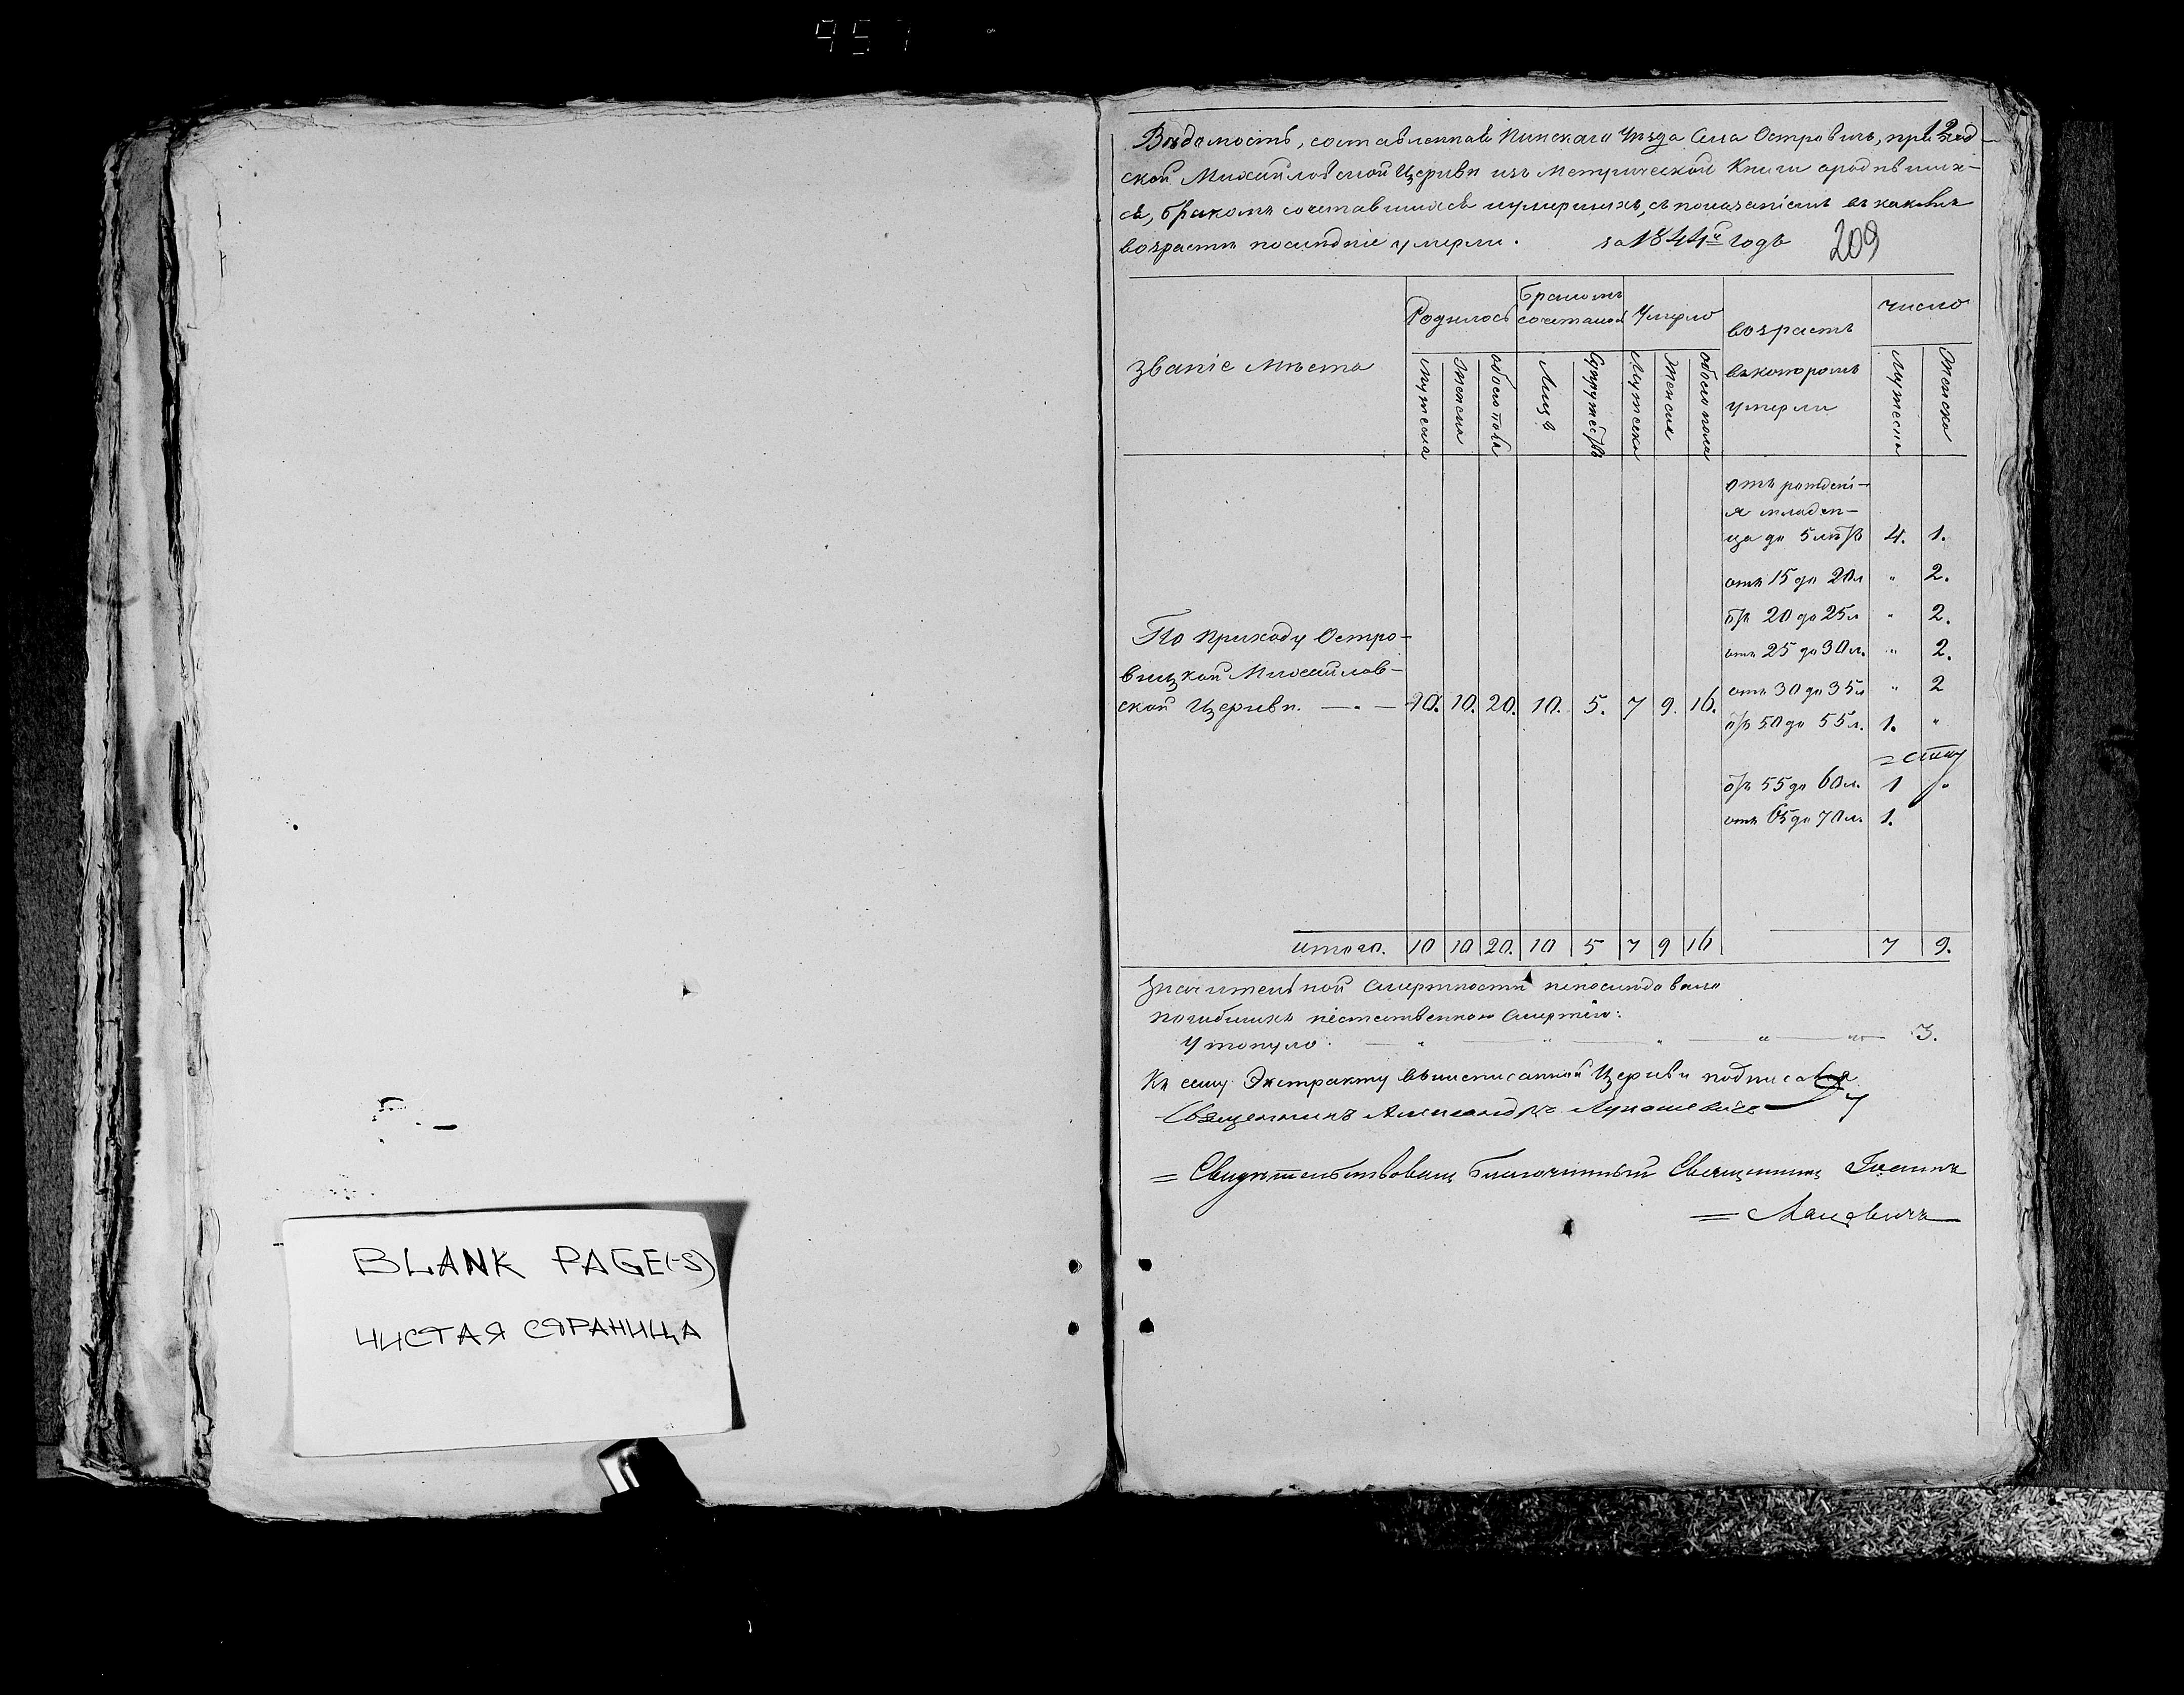 957
BLANK PAGE(-S)
ЧИСТАЯ СТРАНИЦА
12
Вѣдомость, составленная Пинскаго Уѣзда Села Островичь, приход-
ской Михайловской Церкви изъ Метрической Книги о родивших-
ся, бракомъ сочетавшихся и умершихъ, съ показаніемъ въ какомъ
возрастѣ послѣдніе умерли. за 1844й годъ 209
званіе мѣста Родилось бракомъ сочеталось Умерло возрастъ въ которомъ умерли число
мужеска женска обоего пола Лицъ Супружествъ Мужеска Женска обоего пола Мужеска Женска
отъ рожденi-
я младен-
ца до 5 лѣтъ 4. 1.
отъ 15 до 20 л " 2.
отъ 20 до 25 л " 2.
отъ 25 до 30 л. " 2.
отъ 30 до 35 л " 2
отъ 50 до 55 л. 1. "
отъ 55 до 60 л. 1 "
отъ 65 до 70 л. 1.
По приходу Остро-
вицкой Михайлов-
ской Церкви. — . — 10. 10. 20. 10. 5. 7 9. 16.
итого. 10 10 20. 10 5 7 9 16 7 9.
Значительной смертности непослѣдовало
погибшихъ неестественною смертію:
Утонуло. " " " " " 3.
Къ сему Экстракту вышеписанной Церкви подписался
Священникъ Александръ Лукашевичъ
= Свидѣтельствовалъ Благочинный Священникъ Іоаннъ
=